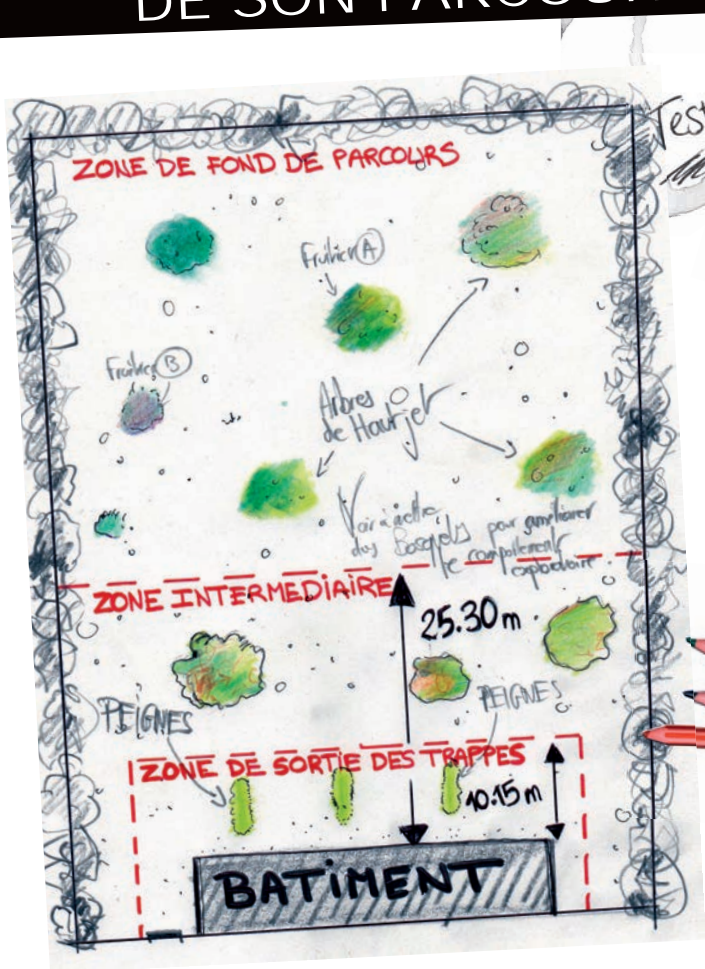 DE SON PARCOUR
Test
ZONE DE FOND DE PARCOURS
Fruitier A
Fruitier B
Arbres
de Haut jet
Voir à mettre
des Bosquets pour améliorer
le comportement
exploratoire
ZONE INTERMEDIAIRE
25.30 m
PEIGNES
PEIGNES
ZONE DE SORTIE DES TRAPPES
10.15 m
BATIMENT